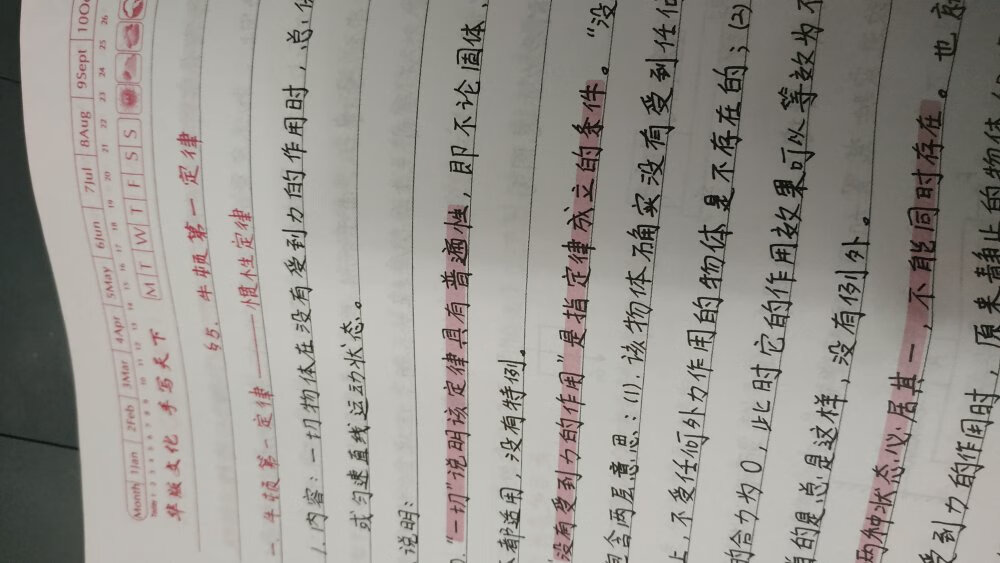 Month 1Jan 2Feb 3Mar 4Apr 5May 6Jun 7Jul 8Aug 9Sept 10Oc
Date 1 2 3 4 5 6 7 8 9 10 11 12 13 14 15 16 17 18 19 20 21 22 23 24 25 26
华版文化 手写天下 M T W T F S S
§5. 牛顿第一定律
一、牛顿第一定律——惯性定律
1.内容:一切物体在没有受到力的作用时,总
或匀速直线运动状态。
说明:
"一切"说明该定律具有普遍性,即不论固体、
都适用,没有特例。
"没有受到力的作用"是指定律成立的条件。"没
包含两层意思:(1).该物体确实没有受到任
上,不受任何外力作用的物体是不存在的;(2)
的合力为0,此时它的作用效果可以等效为不
的是总是这样,没有例外。
两种状态必居其一,不能同时存在。也
受到力的作用时,原来静止的物体